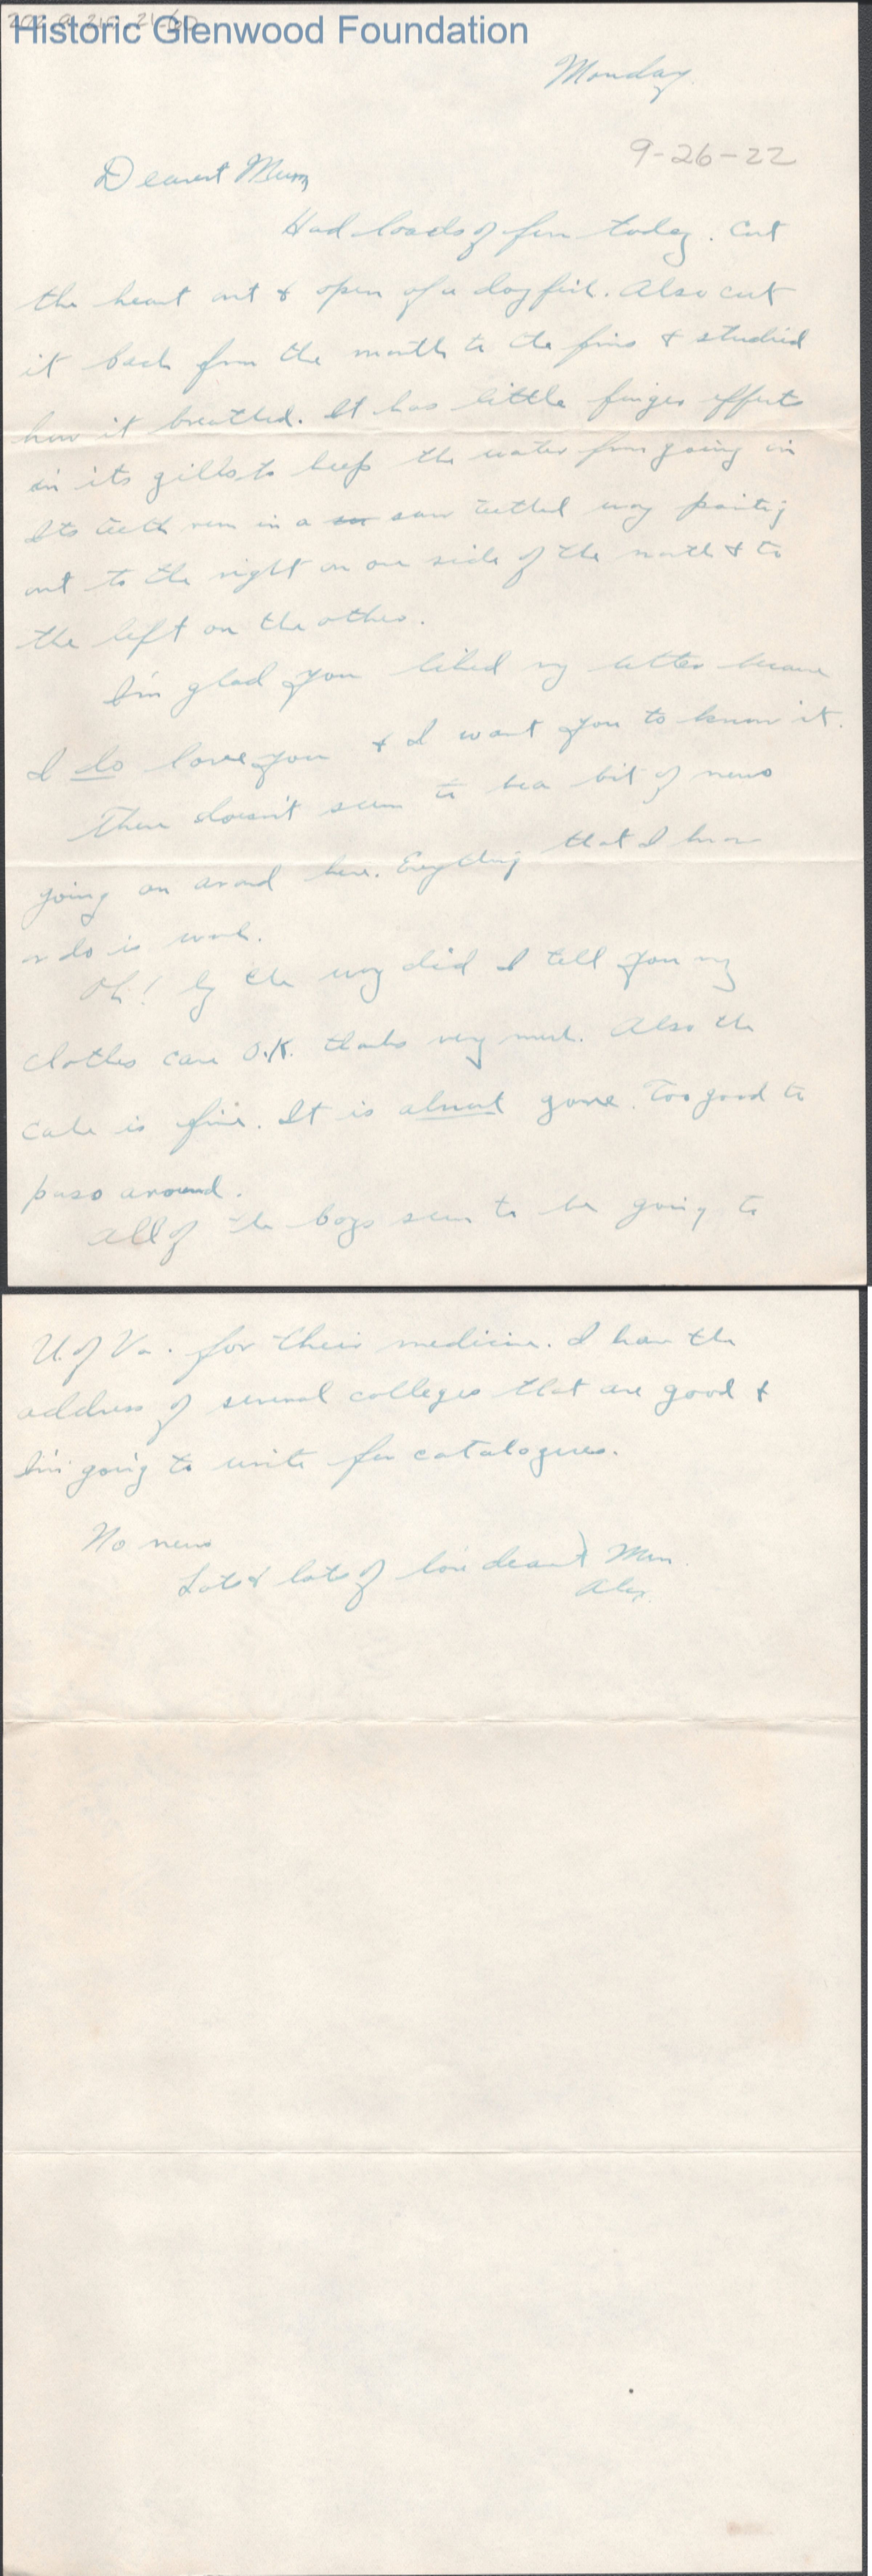 Historic Glenwood Foundation
Monday
9-26-22
Dearest Mum
Had loads of fun today. Cut
the heart out & open of a dogfish. Also cut
it back from the mouth to the fins & studied
how it breathed. It has little finger effects
in its gills to keep the water from going in
Its teeth run in a saw teethed way pointing
out to the right on one side of the mouth & to
the left on the other.
I'm glad you liked my letter because
I do love you & I want you to know it.
There doesn't seem to be a bit of news
going on around here. Everything that I know
or do is work.
Oh! by the way did I tell you my
clothes came O.K. thanks very much. Also the
cake is fine. It is almost gone. Too good to
pass around.
All of the boys seem to be going to
U. of Va. for their medicine. I have the
address of several colleges that are good &
I'm going to write for catalogues.
No news
Lots & lots of love dearest Mum.
Alex.